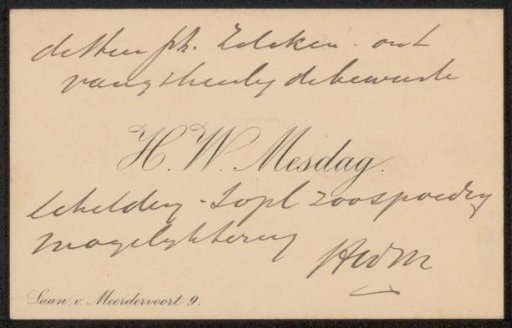 den Heer Ph. Zilcken - ont
vangt hierbij de bewuste
H. W. Mesdag.
schilderij - zoospoedig
mogelijk terug
HWM
Laan v. Meerdervoort 9.